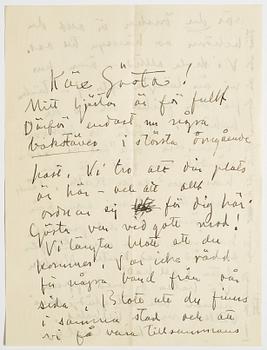 Käre Gösta!
Mitt hjärta är för fullt
Därför endast nu några
bokstäver i största
post. Vi tro att din plats
är här - och att allt
ordnar sig för dig här
Gösta var vid gott mod!
Vi längta blott att du
kommer. Var icke rädd
för några band från vår
sida. Blott att du finns
i samma stad och att
vi få vara tillsammans